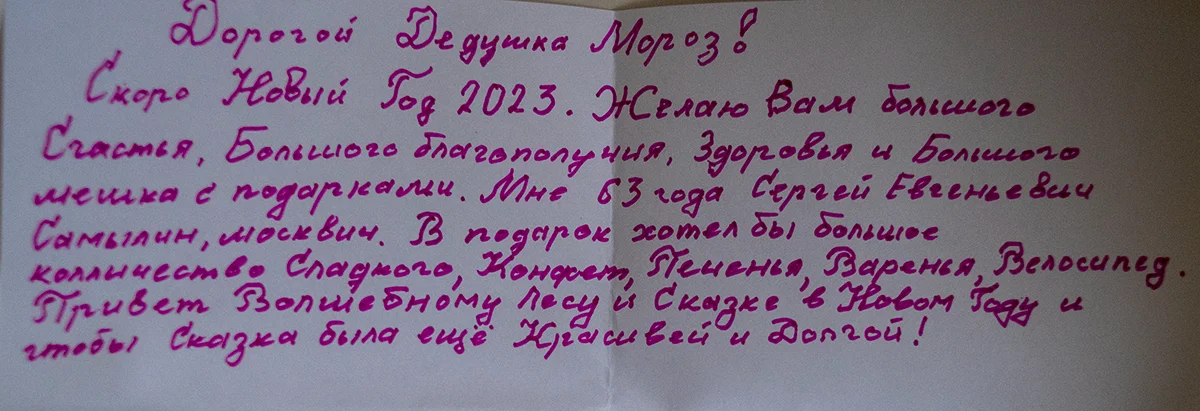 Дорогой Дедушка Мороз!
Скоро Новый Год 2023. Желаю Вам большого
Счастья, Большого благополучия, Здоровья и Большого
мешка с подарками. Мне 63 года Сергей Евгеньевич
Самылин, москвич. В подарок хотел бы большое
колличество Сладкого, Конфет, Печенья, Варенья, Велосипед.
Привет Волшебному Лесу и Сказке в Новом Году и
чтобы Сказка была ещё Красивей и Долгой!